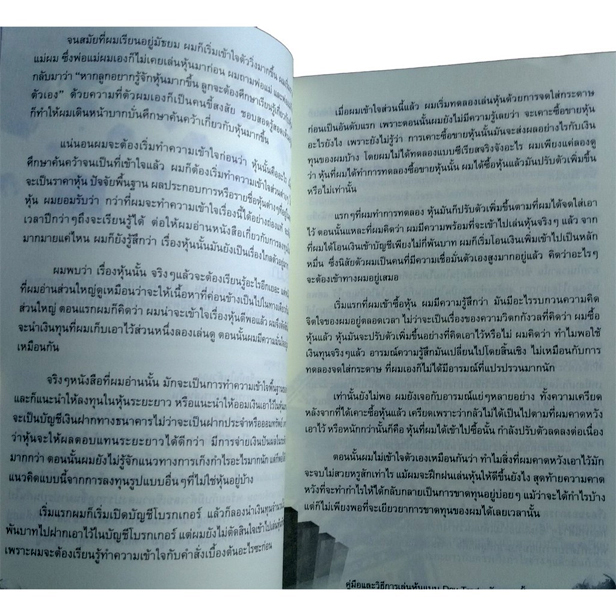 จนสมัยที่ผมเรียนอยู่มัธยม ผมก็เริ่มเข้าใจตัววิ่งมากขึ้น
แม่ผม ซึ่งพ่อแม่ผมเองก็ไม่เคยเล่นหุ้นมาก่อน ผมถามพ่อแม่
กลับมาว่า "หากลูกอยากรู้จักหุ้นมากขึ้น ลูกจะต้องศึกษาเรียนรู้
ตัวเอง" ด้วยความที่ตัวผมเองก็เป็นคนขี้สงสัย ชอบสอดรู้สอดเห็น
ก็ทำให้ผมเดินหน้าบากบั่นศึกษาค้นคว้าเกี่ยวกับหุ้นมากขึ้น
แน่นอนผมจะต้องเริ่มทำความเข้าใจก่อนว่า หุ้นนั้นคืออะไร
ศึกษาค้นคว้าจนเป็นที่เข้าใจแล้ว ผมก็ต้องเริ่มทำความเข้าใจส่วนต่างๆ
จะเป็นราคาหุ้น ปัจจัยพื้นฐาน ผลประกอบการหรือรายชื่อหุ้นต่างๆ
หุ้น ผมยอมรับว่า กว่าที่ผมจะทำความเข้าใจเรื่องนี้ได้อย่างถ่องแท้
เวลาปีกว่าๆถึงจะเรียนรู้ได้ ต่อให้ผมอ่านหนังสือเกี่ยวกับการลงทุน
มากมายแค่ไหน ผมก็ยังรู้สึกว่า เรื่องหุ้นนั้นมันยังเป็นเรื่องไกลตัว
ผมพบว่า เรื่องหุ้นนั้น จริงๆแล้วจะต้องเรียนรู้อะไรอีกเยอะ
ที่ผมอ่านส่วนใหญ่ดูเหมือนว่าจะให้เนื้อหาที่ค่อนข้างเป็นไปในทาง
ส่วนใหญ่ ตอนแรกผมก็คิดว่า ผมน่าจะเข้าใจเรื่องหุ้นดีพอแล้ว
จะนำเงินทุนที่ผมเก็บเอาไว้ส่วนหนึ่งลองเล่นดู ตอนนั้นผมมีความ
เหมือนกัน
จริงๆหนังสือที่ผมอ่านนั้น มักจะเป็นการทำความเข้าใจพื้นฐาน
และก็แนะนำให้ลงทุนในหุ้นระยะยาว หรือแนะนำให้ออมเงินเอาไว้
จะเป็นบัญชีเงินฝากทางธนาคารไม่ว่าจะเป็นฝากประจำหรือออมทรัพย์
ว่าหุ้นจะให้ผลตอบแทนระยะยาวได้ดีกว่า มีการจ่ายเงินปันผล
มากกว่า ตอนนั้นผมยังไม่รู้จักแนวทางการเก็งกำไรอะไรมากนัก
แนวคิดแบบนี้จากการลงทุนรูปแบบอื่นๆที่ไม่ใช่หุ้นอยู่บ้าง
เริ่มแรกผมก็เริ่มเปิดบัญชีโบรกเกอร์ แล้วก็ลองนำเงินทุน
พันบาทไปฝากเอาไว้ในบัญชีโบรกเกอร์ แต่ผมยังไม่ตัดสินใจเข้าไปเล่นหุ้น
เพราะผมจะต้องเรียนรู้ทำความเข้าใจกับคำสั่งเบื้องต้นอะไรซะก่อน
เมื่อผมเข้าใจส่วนนี้แล้ว ผมเริ่มทดลองเล่นหุ้นด้วยการจดใส่กระดาษ
ก่อนเป็นอันดับแรก เพราะตอนนั้นผมยังไม่มีความรู้เลยว่า จะเคาะซื้อขายหุ้น
อะไรยังไง เพราะยังไม่รู้ว่า การเคาะซื้อขายหุ้นนั้นมันจะส่งผลอย่างไรกับเงิน
ทุนของผมบ้าง โดยผมไม่ได้ทดลองแบบซีเรียสจริงจังอะไร ผมเพียงแค่ลองดู
ว่า หุ้นที่ผมได้ทำการทดลองซื้อขายหุ้นนั้น ผมได้ซื้อหุ้นแล้วมันปรับตัวเพิ่มขึ้น
หรือไม่เท่านั้น
แรกๆที่ผมทำการทดลอง หุ้นมันก็ปรับตัวเพิ่มขึ้นตามที่ผมได้จดใส่เอา
ไว้ ตอนนั้นแหละที่ผมคิดว่า ผมมีความพร้อมที่จะเข้าไปเล่นหุ้นจริงๆ แล้ว จาก
ที่ผมได้โอนเงินเข้าบัญชีเพียงไม่กี่พันบาท ผมก็เริ่มโอนเงินเพิ่มเข้าไปเป็นหลัก
หมื่น ซึ่งนิสัยตัวผมเป็นคนที่มีความเชื่อมั่นตัวเองสูงมากอยู่แล้ว คิดว่าอะไรๆ
จะต้องเข้าทางผมอยู่เสมอ
เริ่มแรกที่ผมเข้าซื้อหุ้น ผมมีความรู้สึกว่า มันมีอะไรรบกวนความคิด
จิตใจของผมอยู่ตลอดเวลา ไม่ว่าจะเป็นเรื่องของความวิตกกังวลที่คิดว่า ผมซื้อ
หุ้นแล้ว หุ้นมันจะปรับตัวเพิ่มขึ้นอย่างที่คิดเอาไว้หรือไม่ ผมคิดว่า ทำไมพอใช้
เงินทุนจริงๆแล้ว อารมณ์ความรู้สึกมันเปลี่ยนไปโดยสิ้นเชิง ไม่เหมือนกับการ
ทดลองจดใส่กระดาษ ที่ผมเองก็ไม่ได้มีอารมณ์ที่แปรปรวนมากนัก
เท่านั้นยังไม่พอ ผมยังเจอกับอารมณ์แย่ๆหลายอย่าง ทั้งความเครียด
หลังจากที่ได้เคาะซื้อหุ้นแล้ว เครียดเพราะว่ากลัวไม่ได้เป็นไปตามที่ผมคาดหวัง
เอาไว้ หรือหนักกว่านั้นก็คือ หุ้นที่ผมได้เข้าไปซื้อนั้น กำลังปรับตัวลดลงต่อเนื่อง
ตอนนั้นผมไม่เข้าใจตัวเองเหมือนกันว่า ทำไมสิ่งที่ผมคาดหวังเอาไว้มัก
จะจบไม่สวยหรูสักเท่าไร แม้ผมจะฝึกฝนเล่นหุ้นให้ดีขึ้นยังไง สุดท้ายความคาด
หวังที่จะทำกำไรให้ได้กลับกลายเป็นการขาดทุนอยู่บ่อยๆ แม้ว่าจะได้กำไรบ้าง
แต่ก็ไม่เพียงพอที่จะเยียวยาการขาดทุนของผมได้เลยเวลานั้น
คู่มือและวิธีการเล่นหุ้นแบบ Day